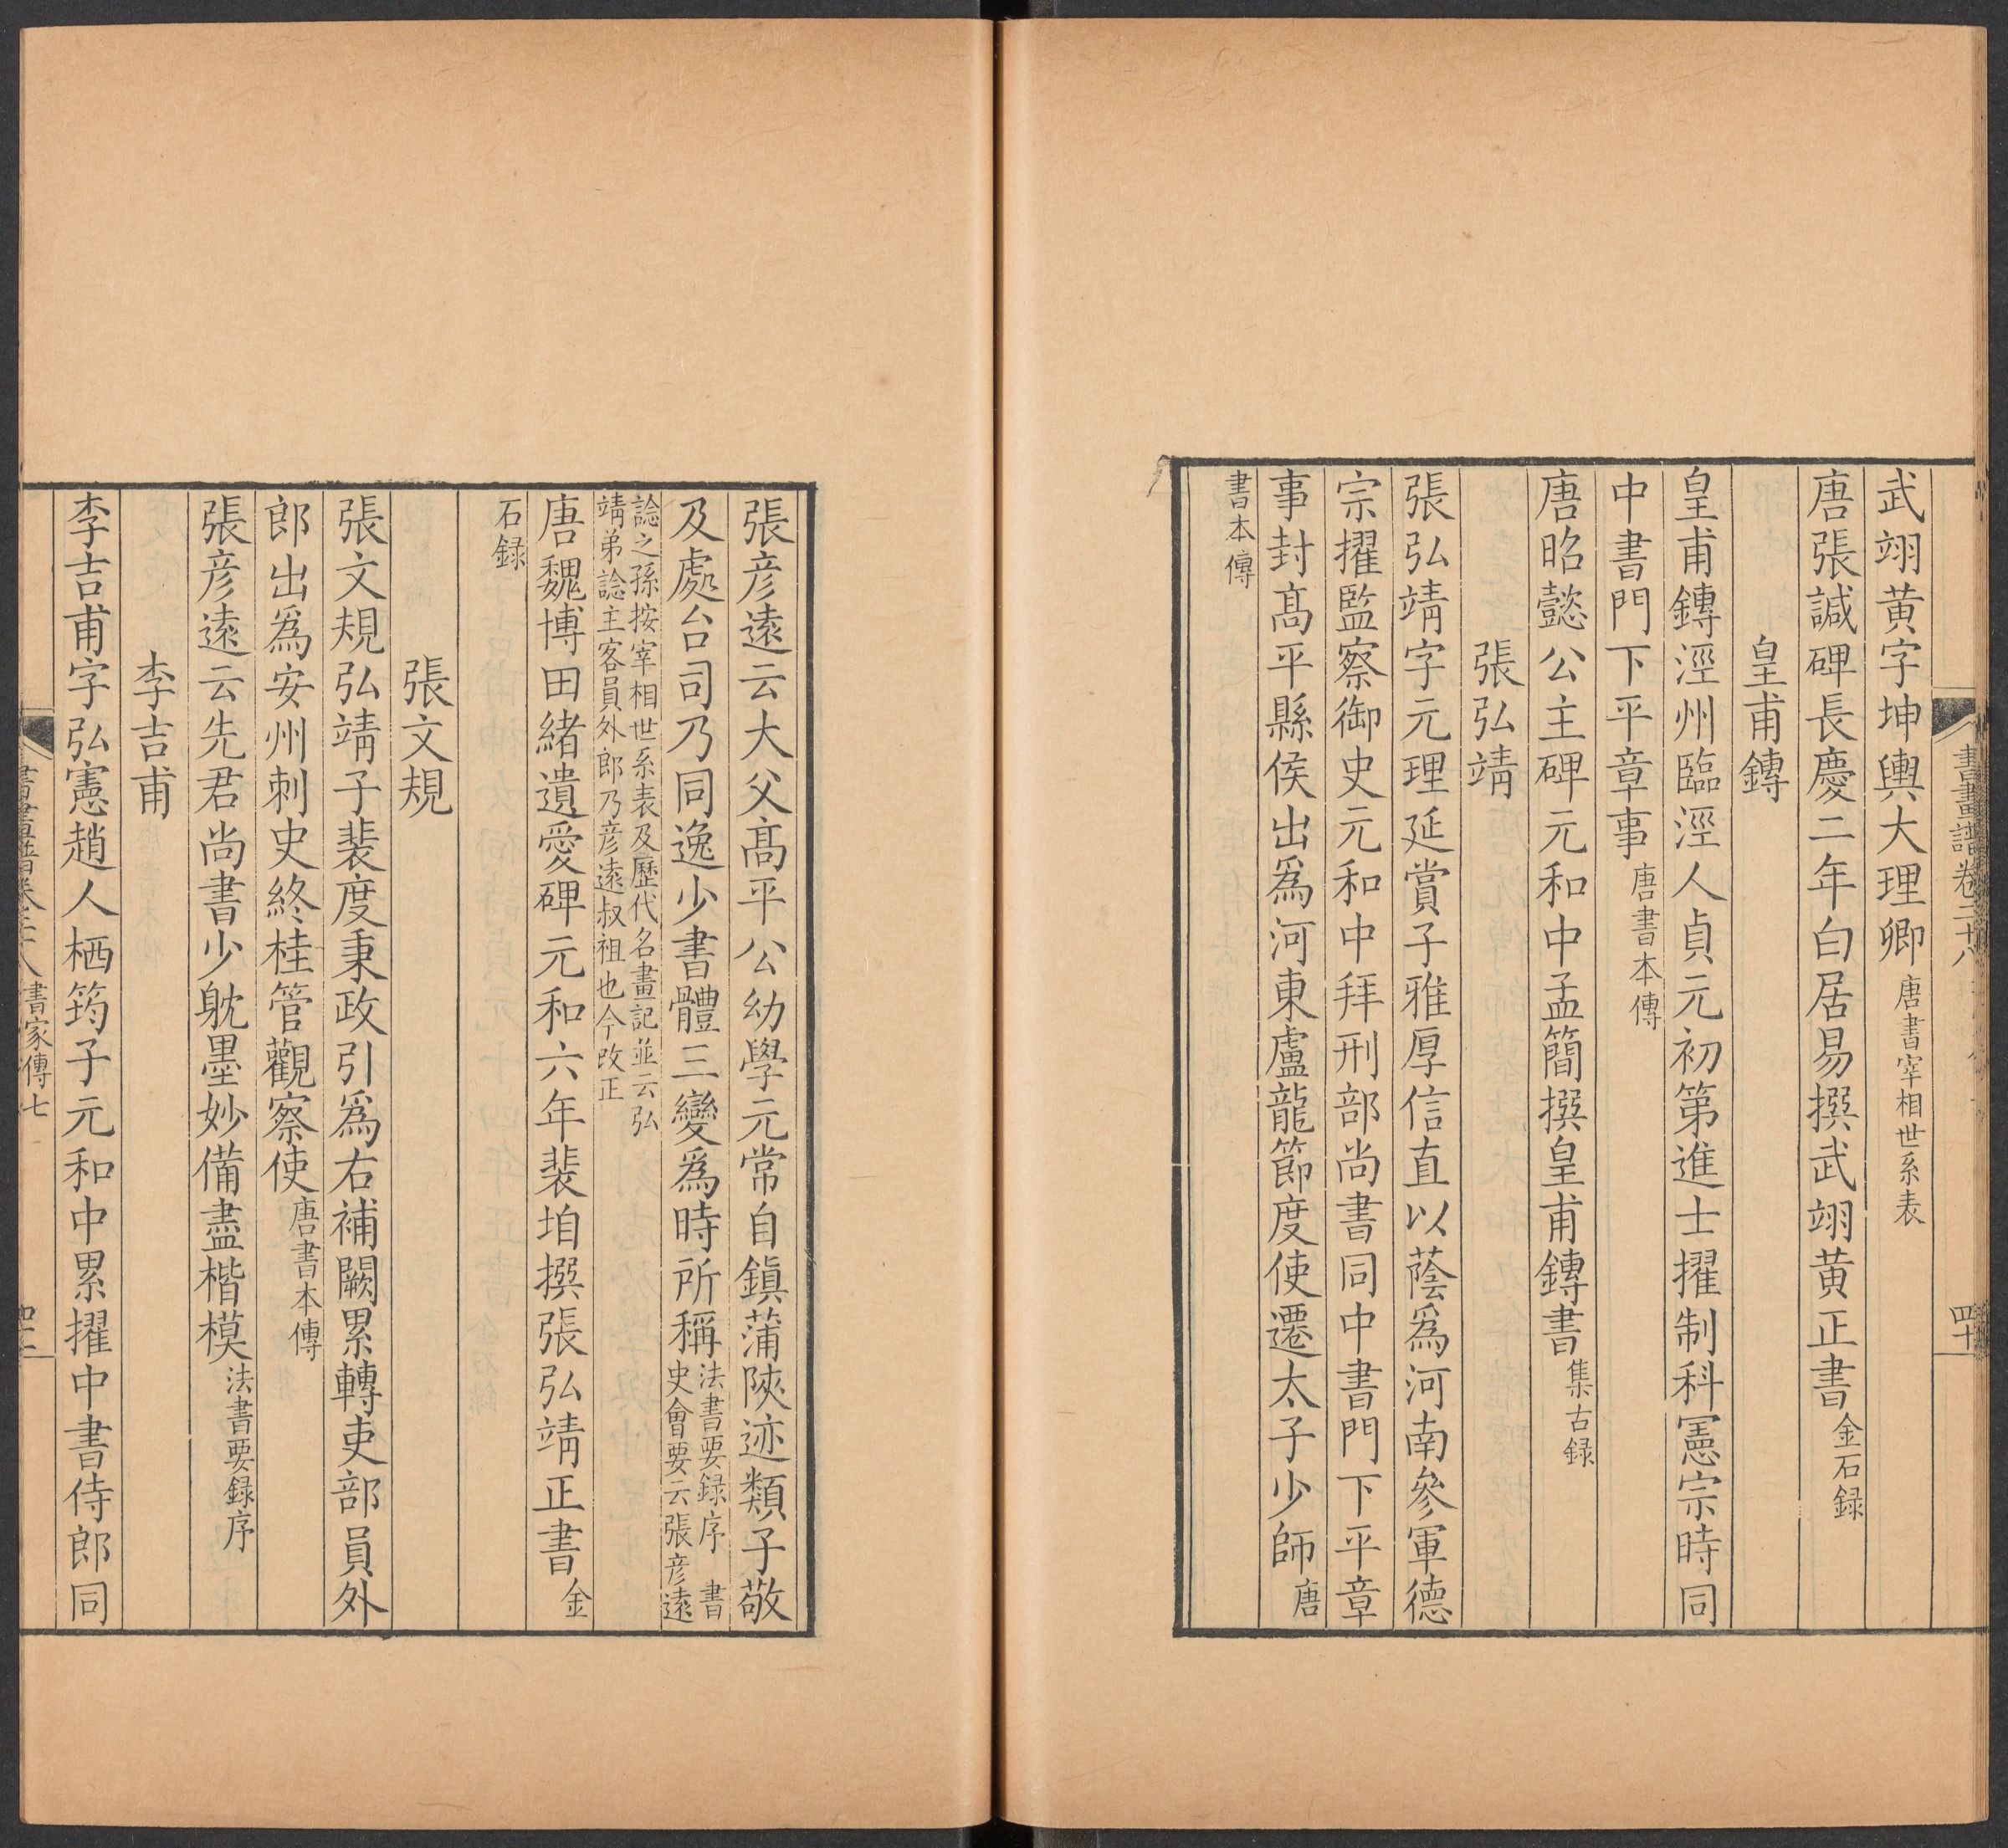 書畫譜卷二十八
四十
武翊黃字坤輿大理卿唐書宰相世系表
唐張諴碑長慶二年白居易撰武翊黃正書金石録
皇甫鏄
皇甫鏄涇州臨涇人貞元初第進士擢制科憲宗時同
中書門下平章事唐書本傳
唐昭懿公主碑元和中孟簡撰皇甫鏄書集古録
張弘靖
張弘靖字元理延賞子雅厚信直以蔭爲河南參軍德
宗擢監察御史元和中拜刑部尚書同中書門下平章
事封髙平縣侯出爲河東盧龍節度使遷太子少師唐
書本傳
張彦遠云大父髙平公幼學元常自鎮蒲陝迹類子敬
及處台司乃同逸少書體三變爲時所稱法書要録序　書
史會要云張彦遠
諗之孫按宰相世系表及歷代名畫記並云弘
靖弟諗主客員外郎乃彦遠叔祖也今改正
唐魏博田緒遺愛碑元和六年裴垍撰張弘靖正書金
石録
張文規
張文規弘靖子裴度秉政引爲右補闕累轉吏部員外
郎出爲安州刺史終桂管觀察使唐書本傳
張彦遠云先君尚書少耽墨妙備盡楷模法書要録序
李吉甫
李吉甫字弘憲趙人栖筠子元和中累擢中書侍郎同
書家傳七